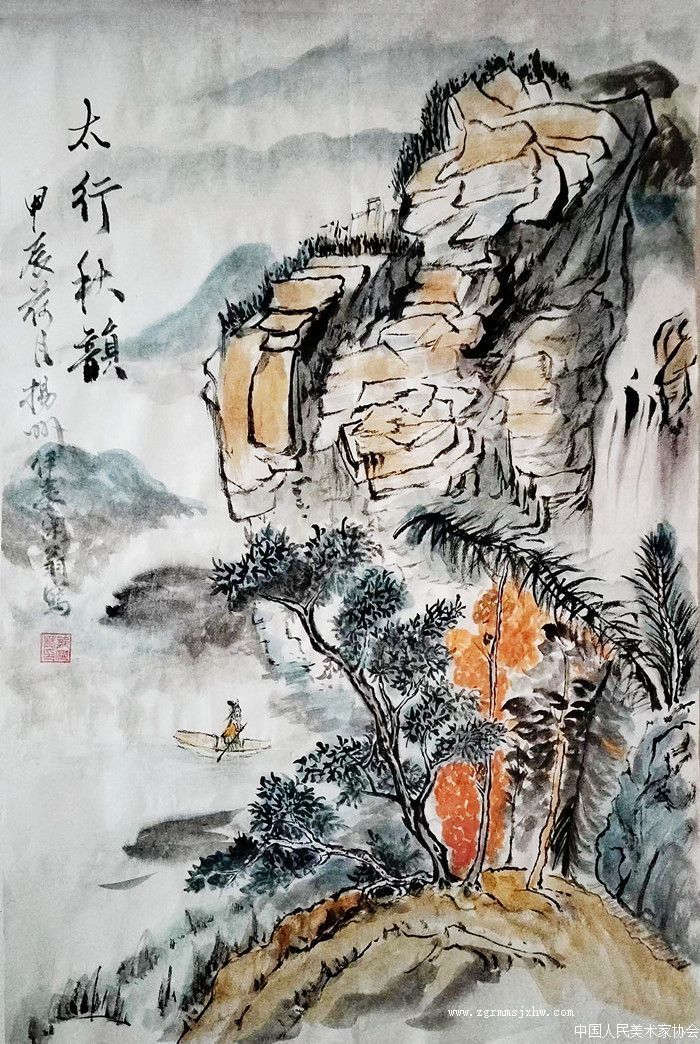 太行秋韻
甲辰荷月揚州
www.zgrmmsjxhw.com
中国人民美术家协会